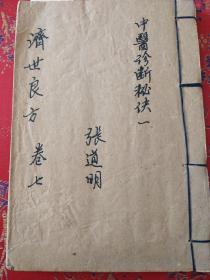 中醫診断秘訣一
張道明
濟世良方 卷七